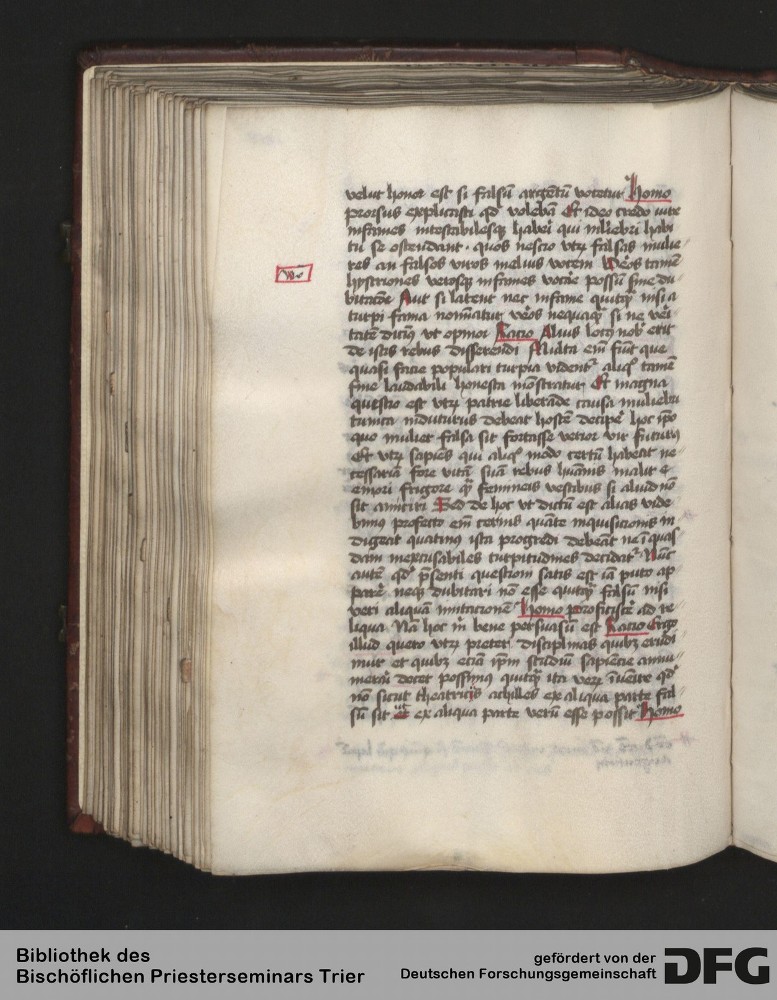 velut honor est si falsū argētū vocetur Homo
prorsus explicasti qd volebā Et ideo credo iure
infames intestabilesqȝ haberi qui mliebri habi
tu se ostendant · quos nescio utrȝ falsas mulie
res an falsos viros melius vocem Veros tamē
hystriones verosqȝ infames vocare possū sine du
bitacōe Aut si latent nec infame quitqȝ nisi a
turpi fama nominatur veros nequaqȝ si ne veri
tatē dicimꝰ ut opinor Racio Alius locꝰ nob erit
de istis rebus disserendi Multa em fiunt que
quasi facie populari turpia vident aliqȝ tamē
fine laudabili honesta mōstratur Et magna
questio est utrȝ patrie liberāde causa muliebri
tunica indutꝰ debeat hostē decipe hoc ipo
quo mulier falsa sit fortasse verior vir futurꝰ
Et utrȝ sapiēs qui aliqȝ modo certū habeat ne
cessariā fore vitā suā rebus huanis malit e
emori frigore qȝ femineis vestibus si aliud nō
sit amiciri Sed de hoc ut dictū est alias vide
bimꝰ profecto em cernis quāte inquisicionis in
digeat quatinꝰ ista progredi debeāt ne ī quas
dam inexcusabiles turpitudines decidat Nūc
autē qd psenti questioni satis est iā puto ap
pare neqȝ dubitari nō esse quitqȝ falsū nisi
veri aliquā imitacionē Homo
liqua Nā hoc m bene persuasū est Racio Ergo
illud quero utrȝ preter disciplinas quibȝ erudi
mur et quibȝ eciā ipm studiū sapiencie annu
merari decet possimꝰ quitqȝ ita verȝ īvenire qd
nō sicut theatricꝰ achilles ex aliqua parte fal
sū sit ut ex aliqua parte verū esse possit Homo
Bibliothek des
Bischöflichen Priesterseminars Trier
gefördert von der
Deutschen Forschungsgemeinschaft
DFG